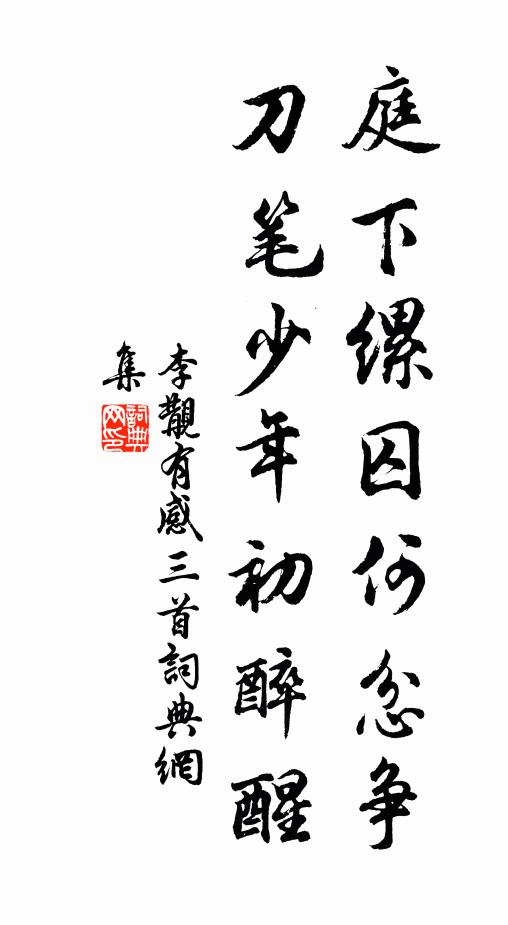 庭下缧囚何忿争
刀笔少年初醉醒
李覯有感三首詞典網
集
詞典网印